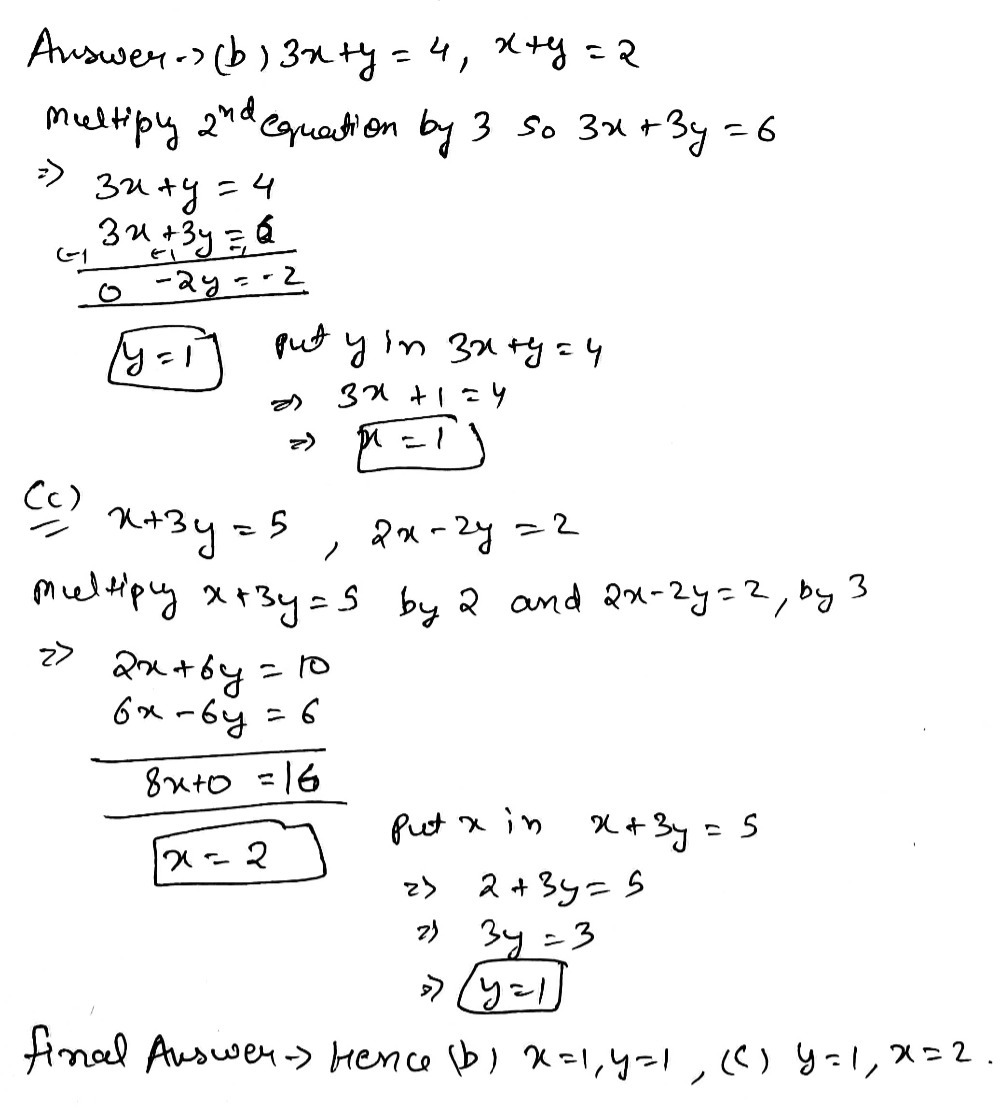 Answer -> (b) 3x+y = 4, x+y = 2
Multiply 2nd equation by 3 so 3x + 3y = 6
=> 3x + y = 4
3x + 3y = 6
(-) (-) (-)
0 -2y = -2
y = 1 put y in 3x + y = 4
=> 3x + 1 = 4
=> x = 1
(c) x+3y = 5, 2x - 2y = 2
Multiply x + 3y = 5 by 2 and 2x - 2y = 2, by 3
=> 2x + 6y = 10
6x - 6y = 6
8x+0 = 16
x = 2 Put x in x + 3y = 5
=> 2 + 3y = 5
=> 3y = 3
=> y = 1
final Answer -> Hence (b) x = 1, y = 1, (c) y = 1, x = 2.